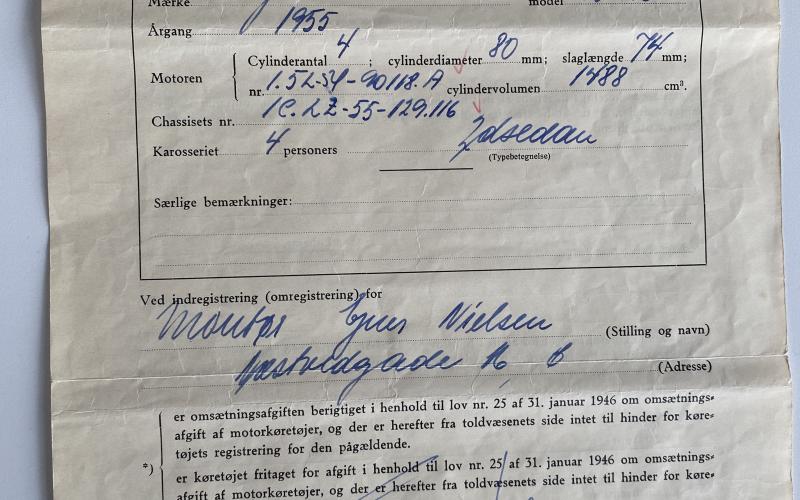 Mærke model
Årgang 1955
Motoren
Cylinderantal 4 ; cylinderdiameter 80 mm; slaglængde 74 mm;
nr. cylindervolumen 1488 cm³.
Chassisets nr. -55-129.116
Karosseriet 4 personers 2dsedan
(Typebetegnelse)
Særlige bemærkninger:
Ved indregistrering (omregistrering) for
Montør Nielsen (Stilling og navn)
(Adresse)
er omsætningsafgiften berigtiget i henhold til lov nr. 25 af 31. januar 1946 om omsætnings-
afgift af motorkøretøjer, og der er herefter fra toldvæsenets side intet til hinder for køre-
tøjets registrering for den pågældende.
*)
er køretøjet fritaget for afgift i henhold til lov nr. 25 af 31. januar 1946 om omsætnings-
afgift af motorkøretøjer, og der er herefter fra toldvæsenets side intet til hinder for køre-